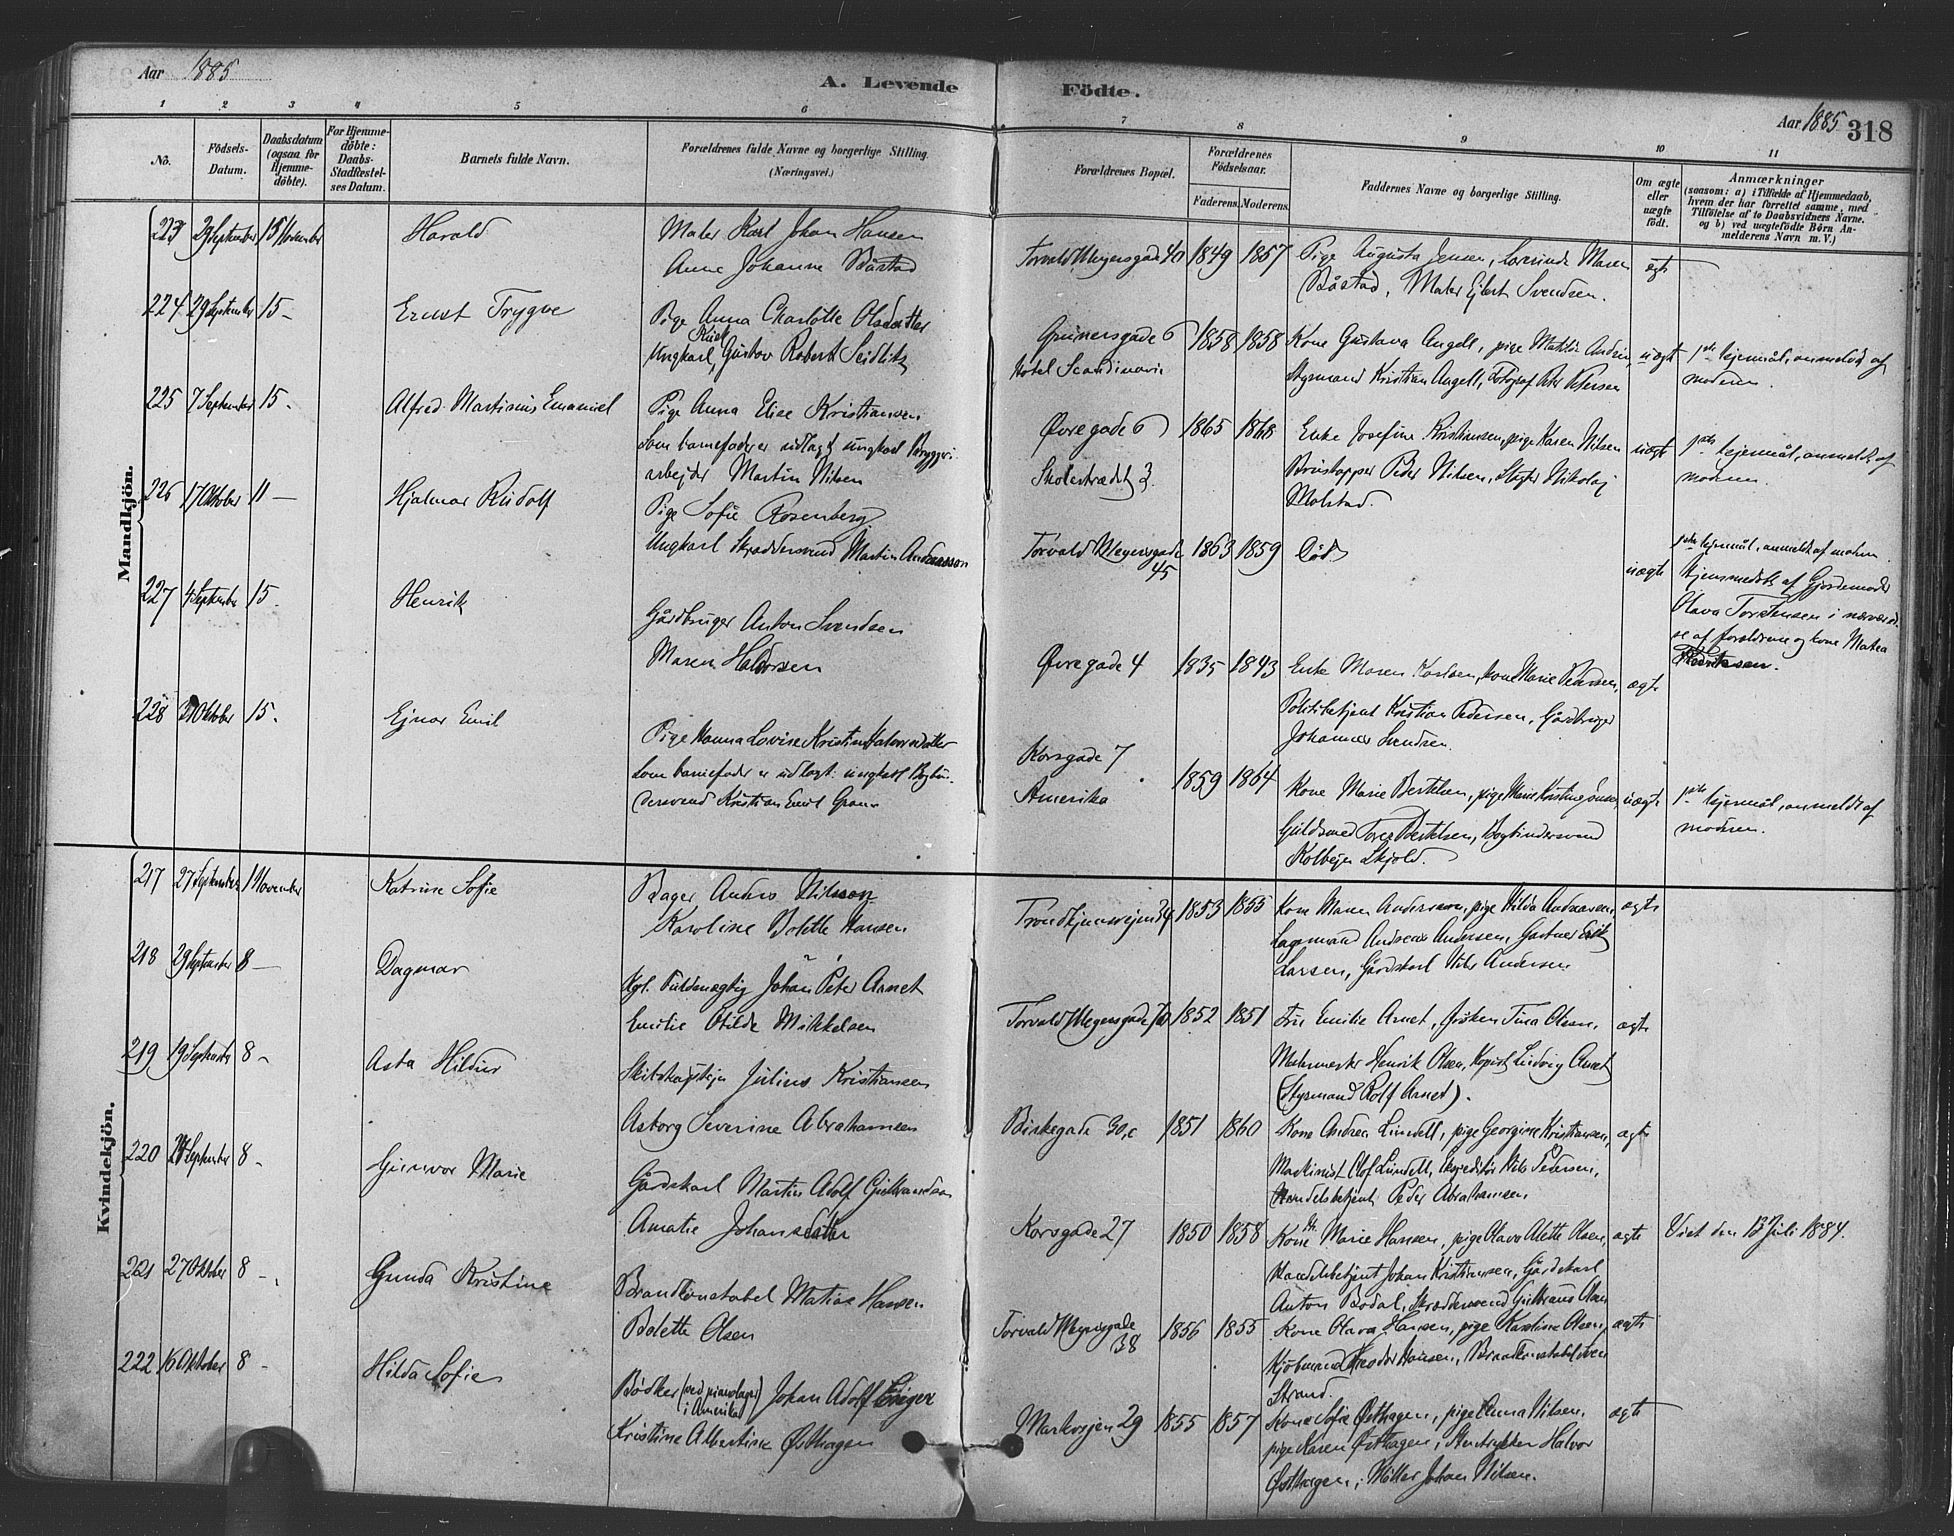 Aar 1885
A. Levende
Födte.
Aar 1885
318
1 2 3 4 5 6 7 8 9 10 11
No.
Födsels-
Datum.
Daabsdatum
(ogsaa for
Hjemme-
döbte).
For Hjemme-
döbte:
Daabs-
Stadfæstel-
ses Datum.
Barnets fulde Navn.
Forældrenes fulde Navne og borgerlige Stilling.
(Næringsvei.)
Forældrenes Bopæl.
Forældrenes
Födselsaar.
Faderens. Moderens.
Faddernes Navne og borgerlige Stilling.
Om ægte
eller
uægte
födt.
Anmærkninger
(saasom: a) i Tilfælde af Hjemmedaab,
hvem der har forrettet samme, med
Tilföielse af to Daabsvidners Navne,
og b) ved uægtefödte Börn An-
melderens Navn m. V.)
Mandkjön.
223 29 September 15 November Harald
Maler Karl Johan Hansen
Anne Johanne Båstad
Torvald Meyersgade 40 1849 1857
Pige Augusta Jensen, Maren
Båstad, Maler Ejlert Svendsen.
ægte
224 29 September 15 – Ernst Trygve
Pige Anna Charlotte Olsdatter
Ungkarl, Kusk Gustav Robert Seidlitz
Grünersgade 6
Hotel Scandinavie
1858 1858
Kone Gustava Angell, pige Matilde
Styrmand Kristian Angell, Fotograf Petersen
uægte
1ste lejermål, anmeldt af
moderen.
225 7 September 15. Alfred Martinius Emanuel
Pige Anna Elise Kristiansen
Som barnefader er udlagt ungkarl Bryggeri
arbejder Martin Nilsen
Øvregade 6
Skolestrædet 3.
1865 1868
Enke Josefine Kristiansen, pige Karen Nilsen
Peder Nilsen, Slagter Nikolaj
Molstad.
uægte
1ste lejermål, anmeldt af
moderen.
226 17 Oktober 11 – Hjalmar Rudolf
Pige Sofie Rosenberg
Ungkarl Skræddersvend Martin Andreasson
Torvald Meyersgade
45
1863 1859
Død
uægte
1ste lejermål, anmeldt af moderen
Hjemmedøbt af Gjordemoder
Olava Torstensen i nærværel-
se af forældrene og kone Matea
227 4 September 15. Henrik
Gårdbruger Anton Svendsen
Maren Halvorsen
Øvregade 4 1835 1843
Enke Maren Karlsen, kone Marie Pedersen,
Politibetjent Kristian Pedersen, Gårdbruger
Johannes Svendsen.
ægte
228 Oktober 15. Ejnar Emil
Pige Hanna Lovise Kristine Halvorsdatter
Som barnefader er udlagt: ungkarl Bogbin-
dersvend Kristian Emil Gran
Korsgade 7
Amerika
1859 1864
Kone Marie Bertelsen, pige Marie Kristine
Guldsmed Bertelsen, Bogbindersvend
Kolbejn Skjold.
uægte
1ste lejermål, anmeldt af
moderen.
Kvindekjön.
217 27 September 1 November Katrine Sofie
Bager Anders Nilsson
Karoline Bolette Hansen
Trondhjemsvejen 34 1853 1855
Kone Maren Andersen, pige Hilda Andreasen,
Andreas Andersen, Gartner Erik
Larsen, Gårdskarl Nils Andersen
ægte
218 29 September 8 – Dagmar
Kgl. Fuldmægtig Johan Peter Arnet
Emilie Otilde Mikkelsen
Torvald Meyersgade 1852 1851
Fru Emilie Arnet, frøken Tina Olsen,
Malermester Henrik Olsen, Kopist Ludvig Arnet
(Styrmand Rolf Arnet).
ægte
219 19 September 8 – Asta Hildur
Julius Kristiansen
Asborg Severine Abrahamsen
Birkegade 30,c 1851 1860
Kone Andrea Lundell, pige Georgine Kristiansen,
Maskinist Olof Lundell, Ekspeditør Nils Pedersen,
Handelsbetjent Peder Abrahamsen
ægte
220 September 8 – Gunvor Marie
Gårdskarl Martin Adolf Gulbrandsen
Amalie Johansdatter
Korsgade 27 1850 1858
Kone Marie Hansen, pige Olava Alette Olsen,
Handelsbetjent Johan Kristiansen, Gårdskarl
Anton Bødal, Skræddersvend Gulbrand Olsen
ægte
Viet den 13 Juli 1884.
221 27 Oktober 8 – Gunda Kristine
Brandkonstabel Matias Hansen
Bolette Olsen
Torvald Meyersgade
38
1856 1855
Kone Olava Hansen, pige Karoline Olsen,
Kjøbmand Theodor Hansen, Brandkonstabel Sven
Strand.
ægte
222 16 Oktober 8 – Hilda Sofie
Bødker (ved pianolager i Amerika) Johan Adolf
Kristine Albertine Østhagen
Markvejen 29 1855 1857
Kone Sofie Østhagen, pige Anna Nilsen,
pige Karen Østhagen, Stentrykker Halvor
Østhagen, Møller Johan Nilsen.
ægte